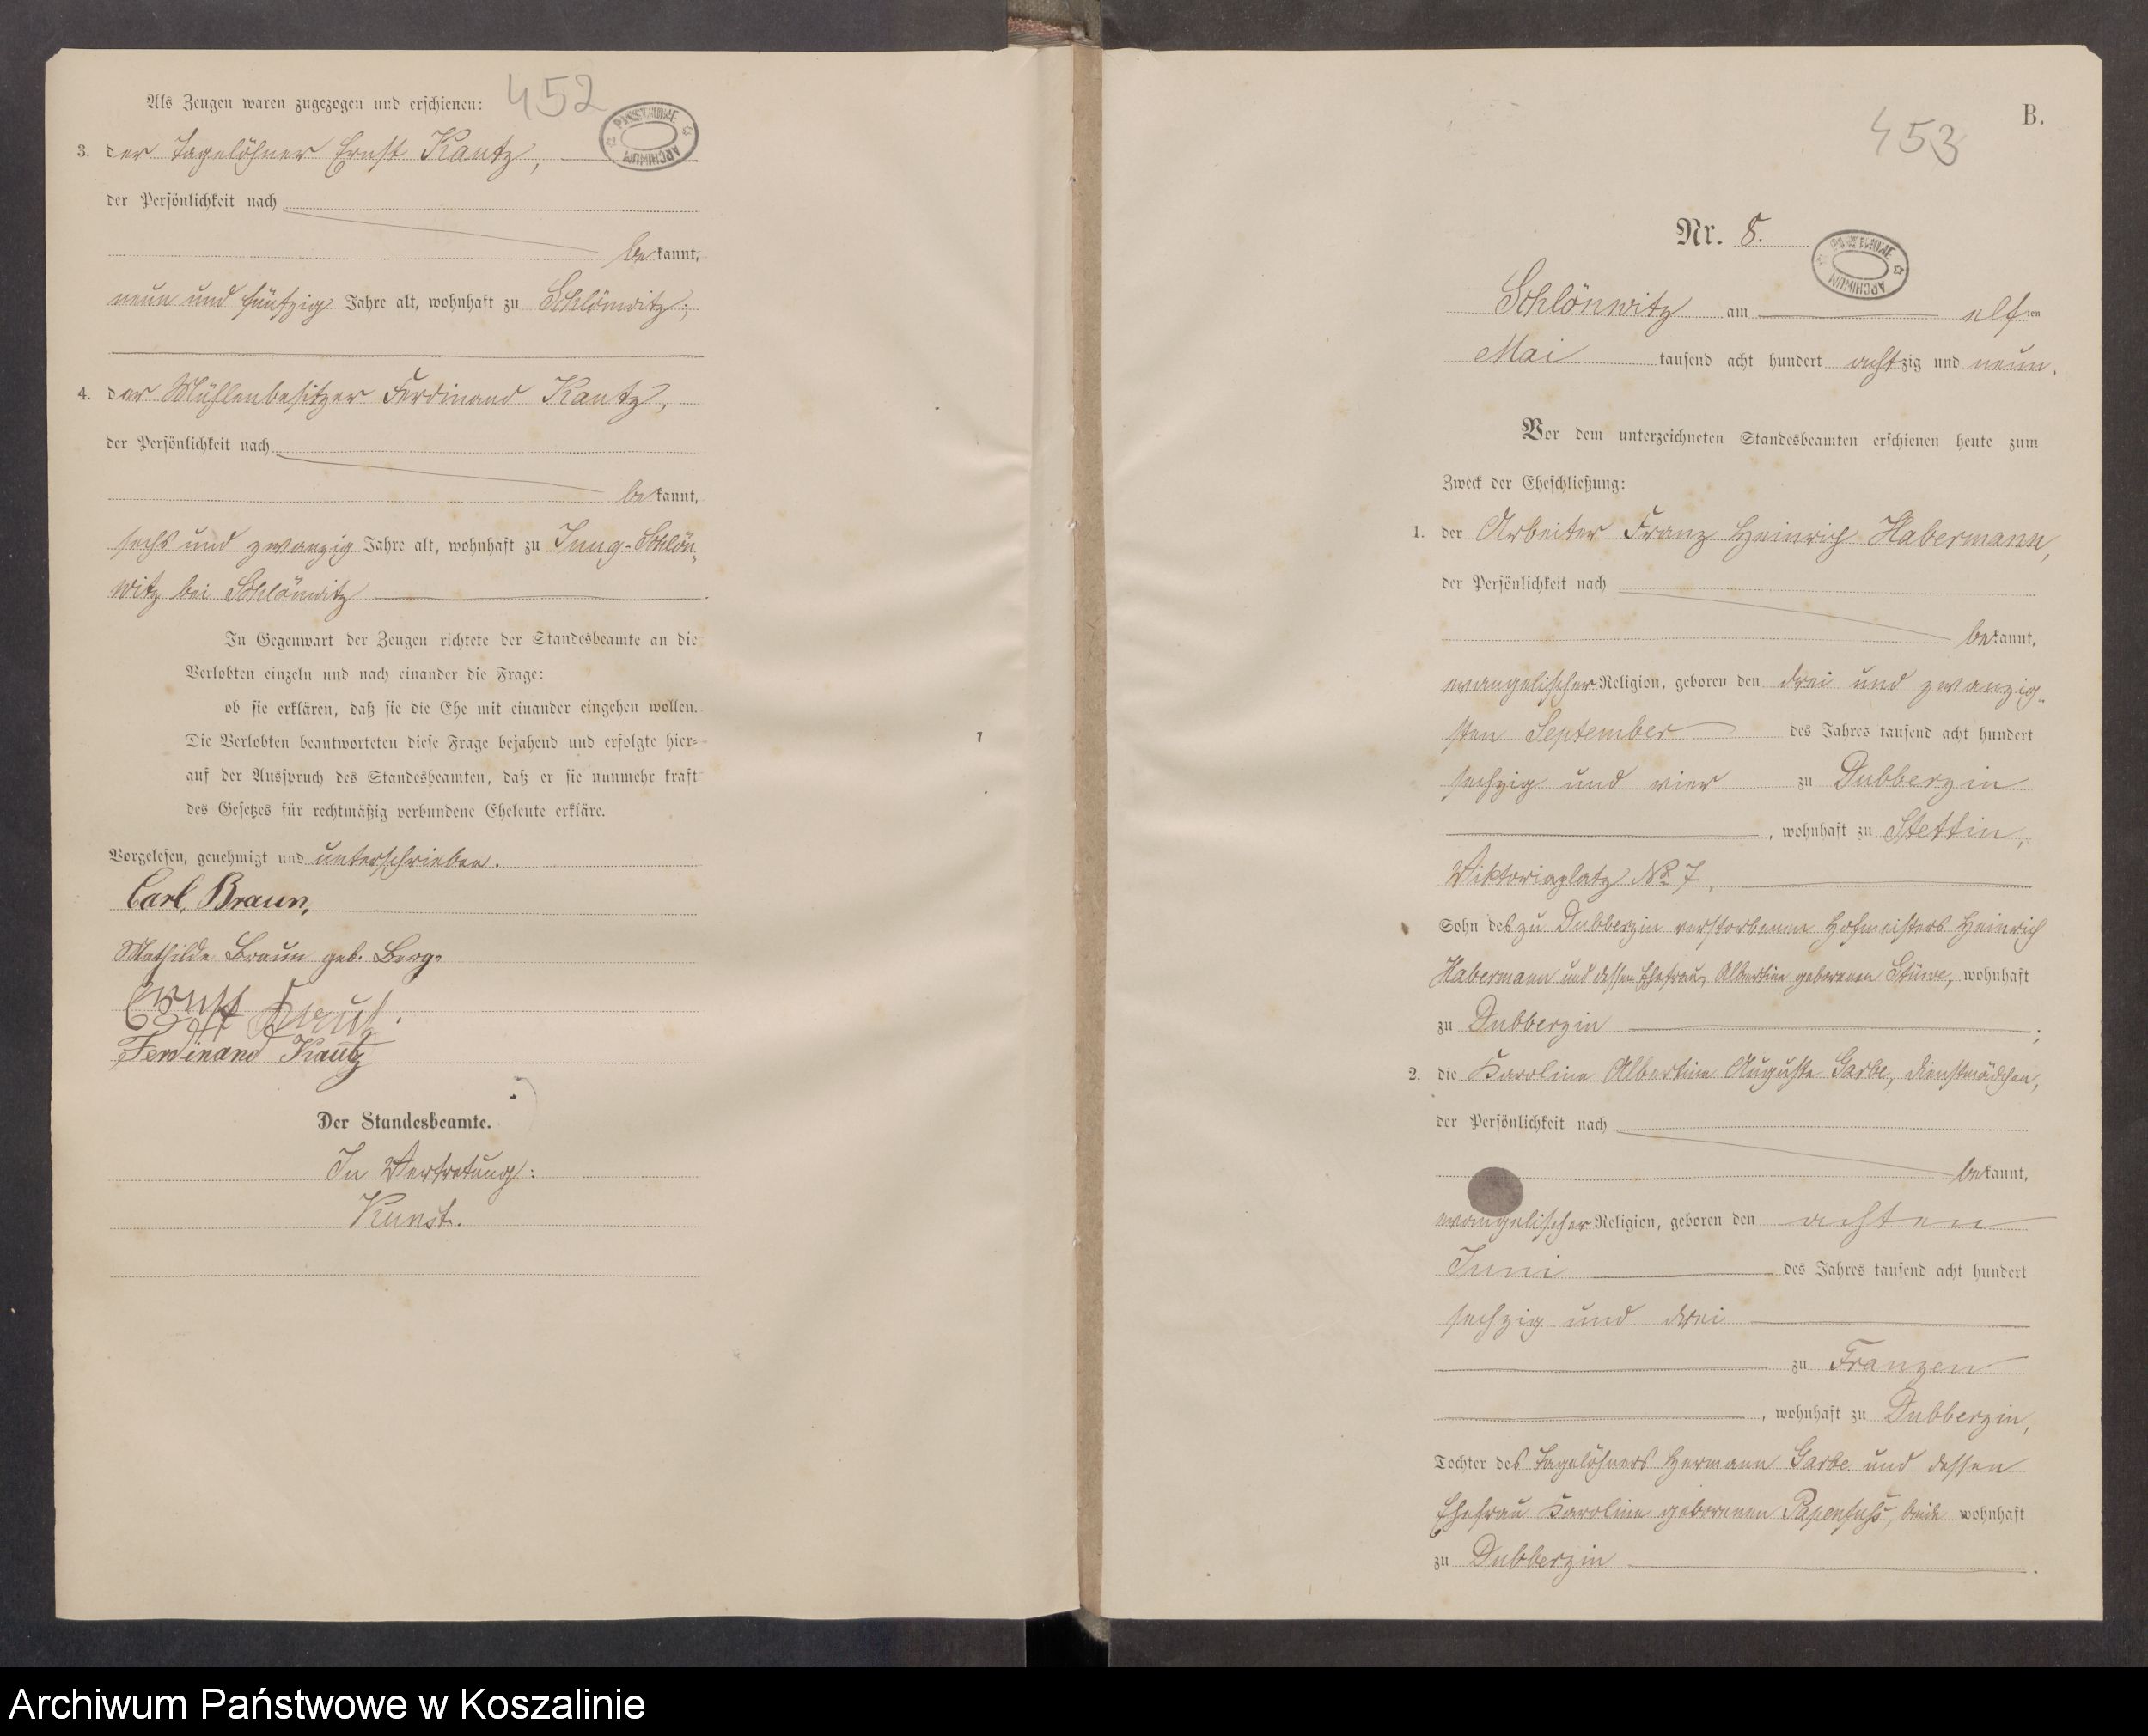 452
Als Zeugen waren zugezogen und erschienen:
PAŃSTWOWE ARCHIWUM
3. der Tagelöhner Ernst Kautz,
der Persönlichkeit nach
bekannt,
neun und fünfzig Jahre alt, wohnhaft zu Schlönwitz;
4. der Mühlenbesitzer Ferdinand Kautz,
der Persönlichkeit nach
bekannt,
sechs und zwanzig Jahre alt, wohnhaft zu Jung-Schlön-
witz bei Schlönwitz.
In Gegenwart der Zeugen richtete der Standesbeamte an die
Verlobten einzeln und nach einander die Frage:
ob sie erklären, daß sie die Ehe mit einander eingehen wollen.
Die Verlobten beantworteten diese Frage bejahend und erfolgte hier-
auf der Ausspruch des Standesbeamten, daß er sie nunmehr kraft
des Gesetzes für rechtmäßig verbundene Eheleute erkläre.
Vorgelesen, genehmigt und unterschrieben.
Carl Braun,
Mathilde Braun geb. Berg.
Ernst
Ferdinand Kautz
Der Standesbeamte.
In Vertretung:
Kunst.
B.
453
Nr. 8.
PAŃSTWOWE ARCHIWUM
Schlönwitz am elften
Mai tausend acht hundert achtzig und neun.
Vor dem unterzeichneten Standesbeamten erschienen heute zum
Zweck der Eheschließung:
1. der Arbeiter Franz Heinrich Habermann,
der Persönlichkeit nach
bekannt,
evangelischer Religion, geboren den drei und zwanzig-
sten September des Jahres tausend acht hundert
sechzig und vier zu Dubberzin
, wohnhaft zu Stettin,
Viktoriaplatz No 7,
Sohn des zu Dubberzin verstorbenen Hofmeisters Heinrich
Habermann und dessen Ehefrau Albertine geborenen Stüwe, wohnhaft
zu Dubberzin;
2. die Karoline Albertine Auguste Garbe, Dienstmädchen,
der Persönlichkeit nach
bekannt,
evangelischer Religion, geboren den achten
Juni des Jahres tausend acht hundert
sechzig und drei
zu Franzen
, wohnhaft zu Dubberzin,
Tochter des Tagelöhners Hermann Garbe und dessen
Ehefrau Karoline geborenen Papenfuß, beide wohnhaft
zu Dubberzin.
Archiwum Państwowe w Koszalinie